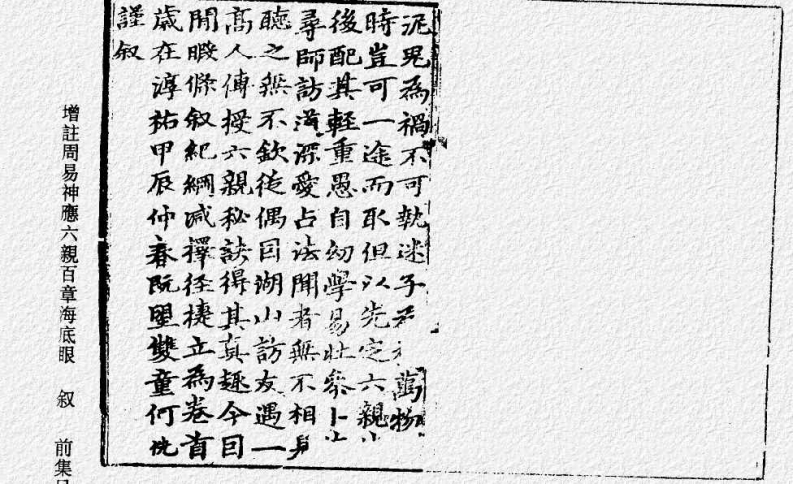 泥鬼為禍不可執迷子萬物
時豈可一途而取但以先定六親
後配其輕重愚自幼學易壯參卜
尋師訪道深愛占法聞者無不相
聽之無不欽從偶囙湖山訪友遇一
高人傳授六親秘訣得其真趣今囙
閒暇條叙紀綱減擇徑捷立為卷首
歲在淳祐甲辰仲春阮雙童何侁
謹叙
增註周易神應六親百章海底眼 叙 前集